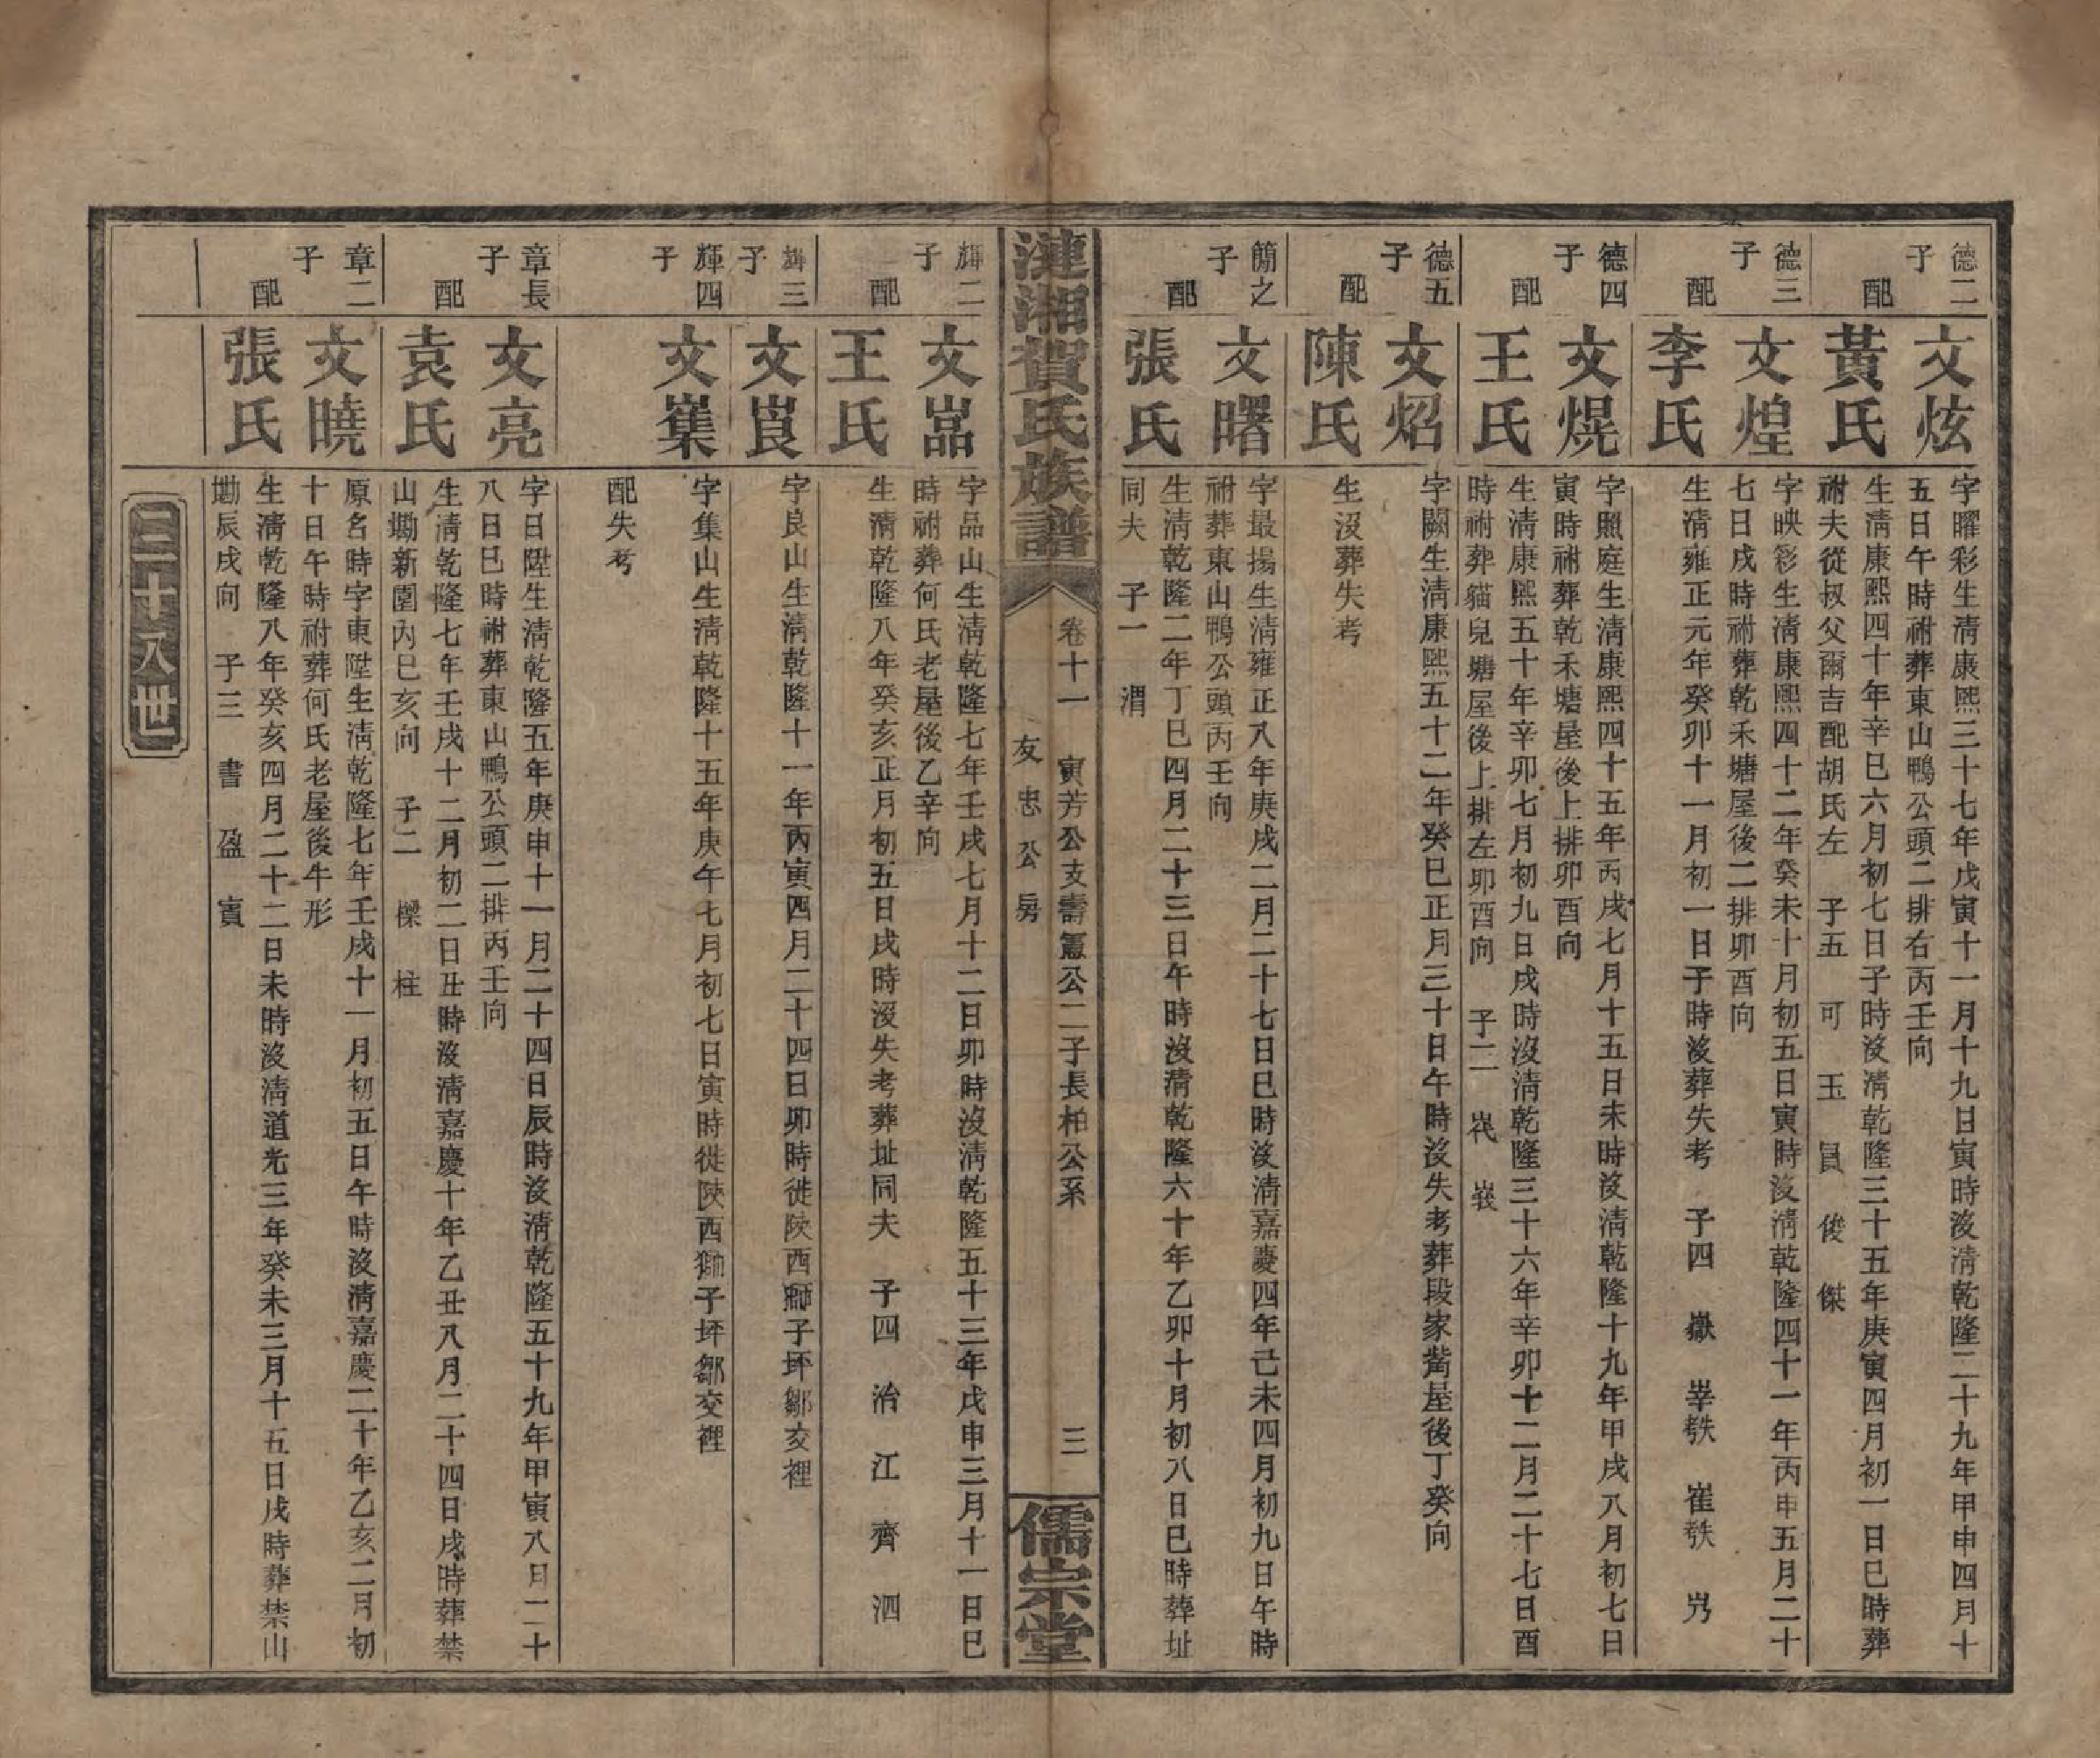 德二子
文炫
字曜彩生清康熙三十七年戊寅十一月十九日寅時沒清乾隆二十九年甲申四月十
五日午時祔葬東山鴨公頭二排右丙壬向
配
黃氏
生清康熙四十年辛巳六月初七日子時沒清乾隆三十五年庚寅四月初一日巳時葬
祔夫從叔父爾吉配胡氏左 子五 可 玉 員 俊 傑
德三子
文煌
字映彩生清康熙四十二年癸未十月初五日寅時沒清乾隆四十一年丙申五月二十
七日戌時祔葬乾禾塘屋後二排卯酉向
配
李氏
生清雍正元年癸卯十一月初一日子時沒葬失考 子四 嶽 崒軼 崔軼 屴
德四子
文焜
字照庭生清康熙四十五年丙戌七月十五日未時沒清乾隆十九年甲戌八月初七日
寅時祔葬乾禾塘屋後上排卯酉向
配
王氏
生清康熙五十年辛卯七月初九日戌時沒清乾隆三十六年辛卯十二月二十七日酉
時祔葬貓兒塘屋後上排左卯酉向 子二
德五子
文炤
字闕生清康熙五十二年癸巳正月三十日午時沒失考葬段家嵩屋後丁癸向
配
陳氏
生沒葬失考
簡之子
文曙
字最揚生清雍正八年庚戌二月二十七日巳時沒清嘉慶四年己未四月初九日午時
祔葬東山鴨公頭丙壬向
配
張氏
生清乾隆二年丁巳四月二十三日午時沒清乾隆六十年乙卯十月初八日巳時葬址
同夫 子一 渭
漣湘賀氏族譜
卷十一 寅芳公支壽憲公二子長柏公系
友忠公房
三
儒宗堂
輝二子
文嵓
字品山生清乾隆七年壬戌七月十二日卯時沒清乾隆五十三年戊申三月十一日巳
時祔葬何氏老屋後乙辛向
配
王氏
生清乾隆八年癸亥正月初五日戌時沒失考葬址同夫 子四 治 江 齊 泗
輝三子
文崀
字良山生清乾隆十一年丙寅四月二十四日卯時徙陝西獅子坪鄒交裡
輝四子
文嶯
字集山生清乾隆十五年庚午七月初七日寅時徙陝西獅子坪鄒交裡
配失考
章長子
文亮
字日陞生清乾隆五年庚申十一月二十四日辰時沒清乾隆五十九年甲寅八月二十
八日巳時祔葬東山鴨公頭二排丙壬向
配
袁氏
生清乾隆七年壬戌十二月初二日丑時沒清嘉慶十年乙丑八月二十四日戌時葬禁
山塸新園內巳亥向 子二 樑 柱
章二子
文曉
原名時字東陞生清乾隆七年壬戌十一月初五日午時沒清嘉慶二十年乙亥二月初
十日午時祔葬何氏老屋後牛形
配
張氏
生清乾隆八年癸亥四月二十二日未時沒清道光三年癸未三月十五日戌時葬禁山
塸辰戌向 子三 書 盈 賓
二十八世